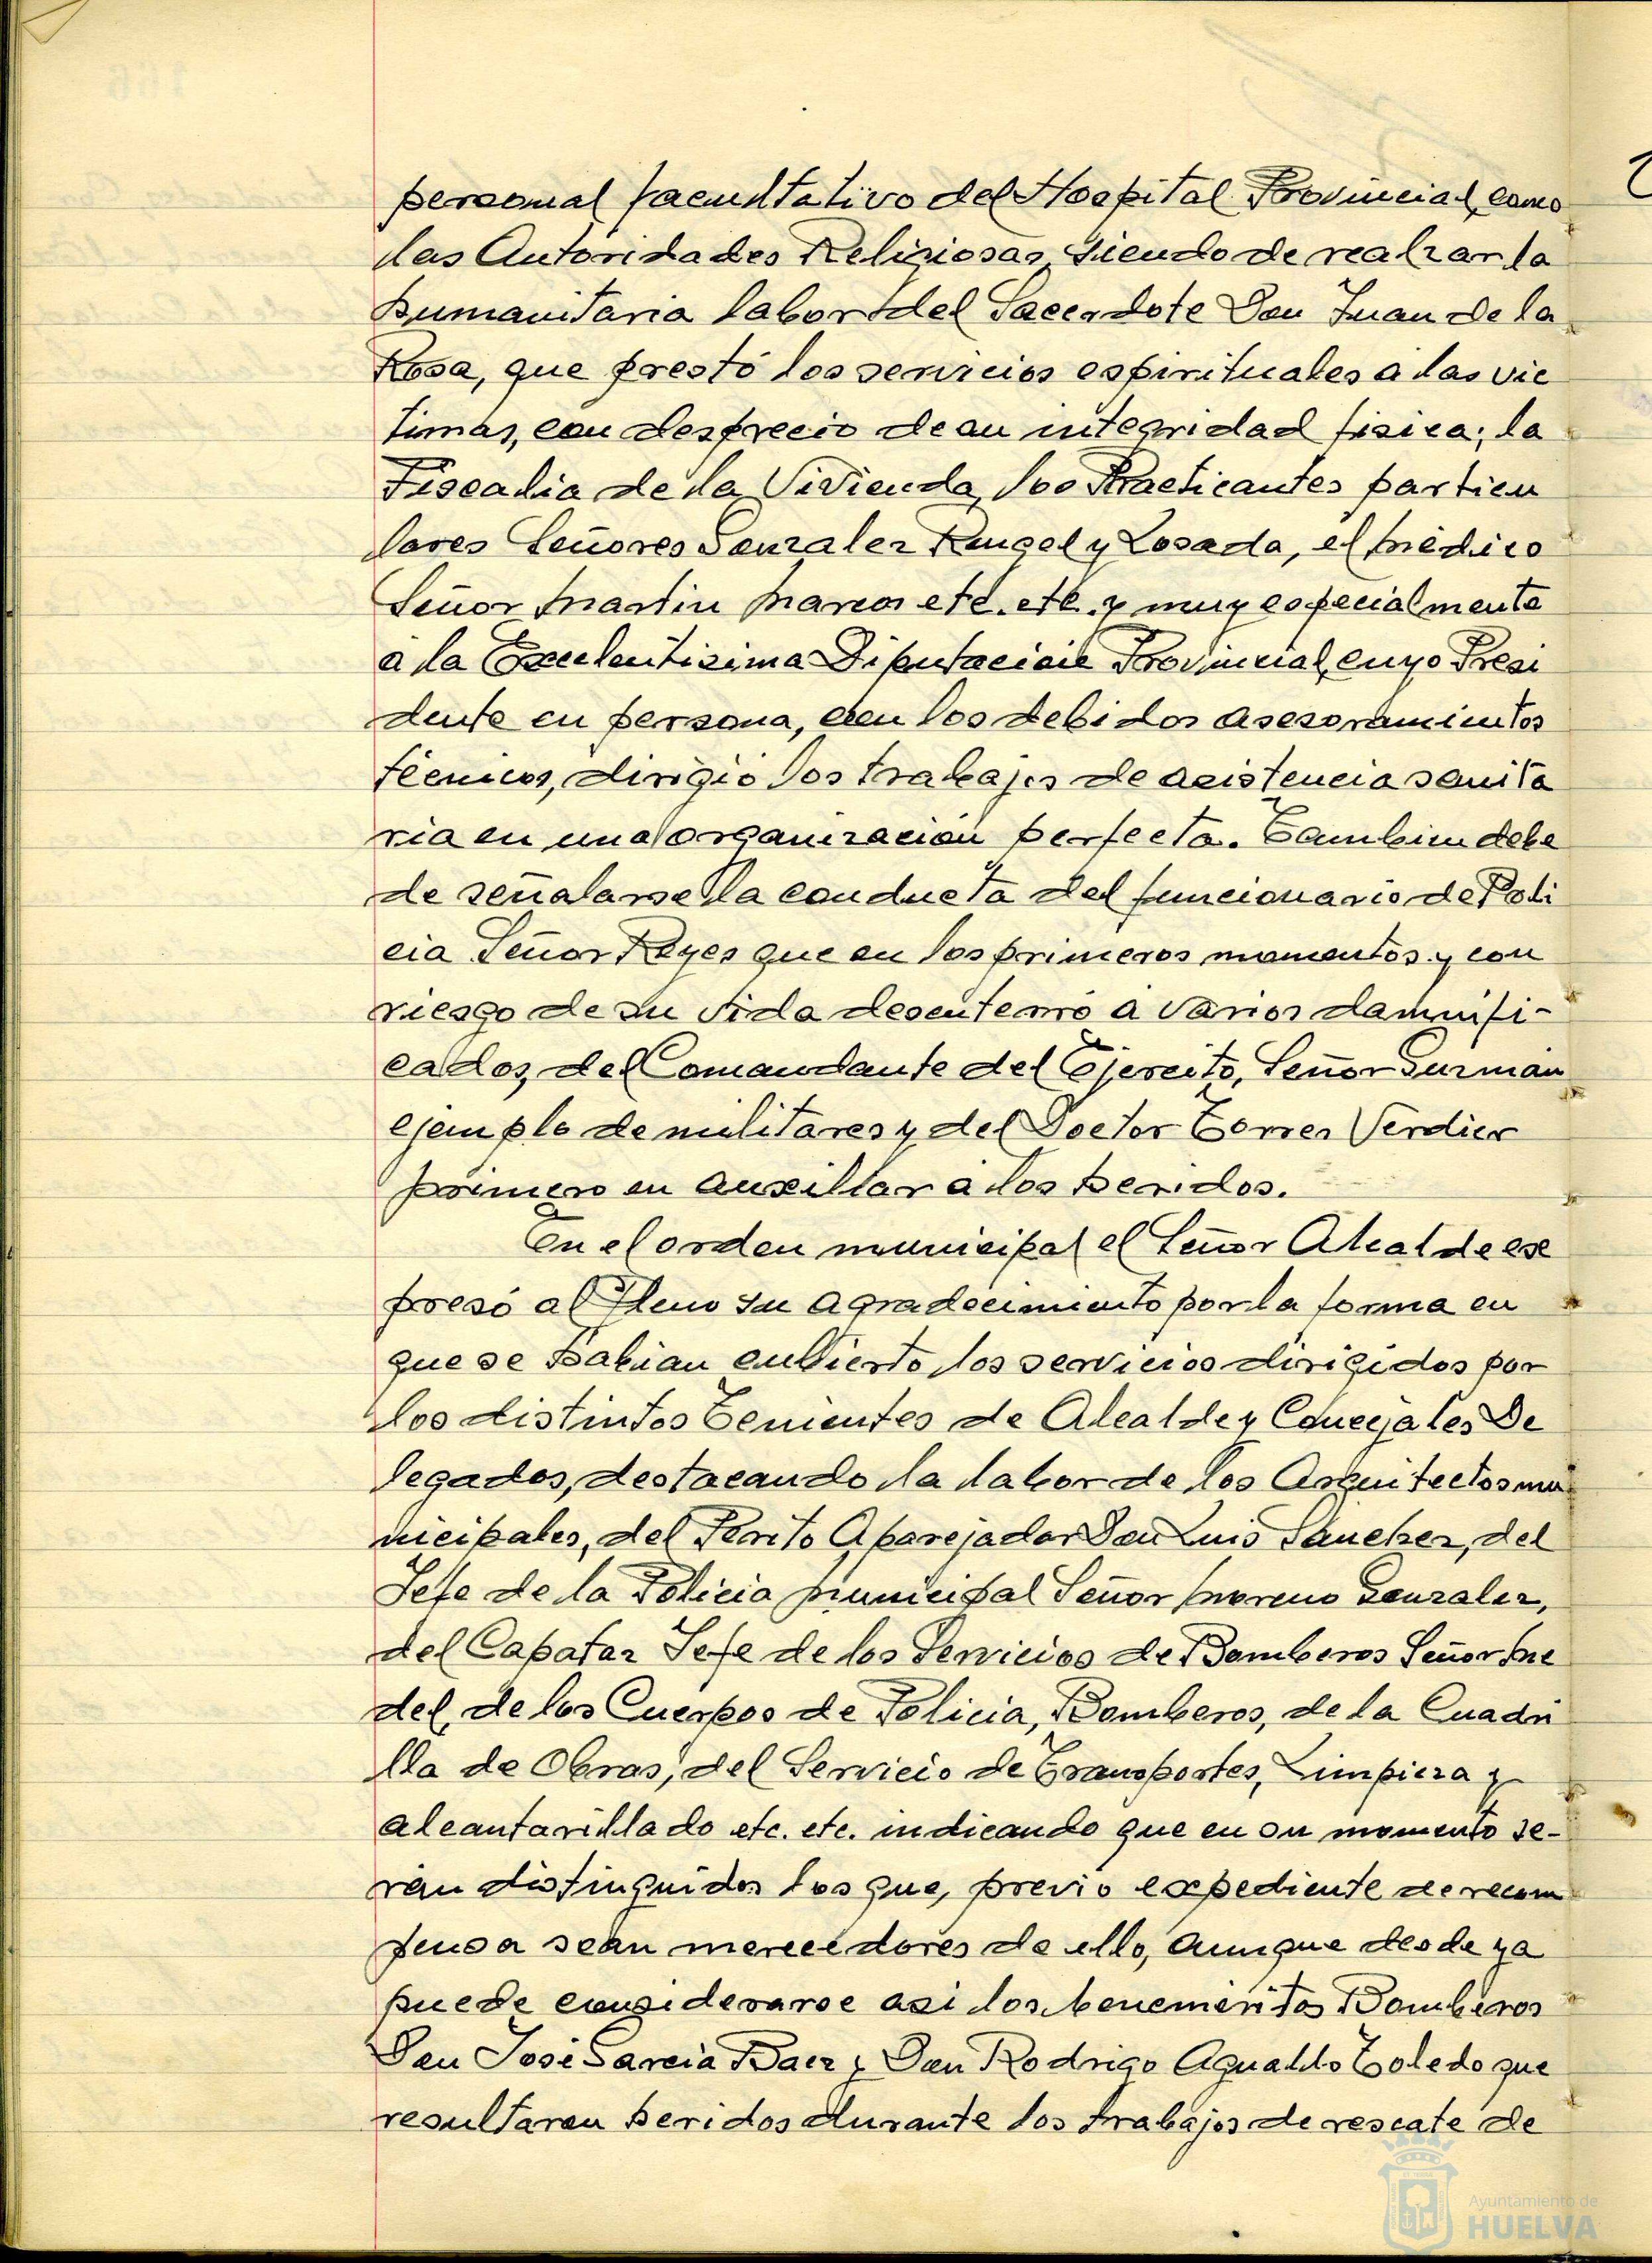 personal facultativo del Hospital Provincial, como
las Autoridades Religiosas, siendo de realzar la
humanitaria labor del Sacerdote Don Juan de la
Rosa, que prestó los servicios espirituales a las vic
timas, con desprecio de su integridad fisica; la
Fiscalia de la Vivienda, los Practicantes particu
lares Señores Gonzalez Rengel y Losada, el médico
Señor Martin Marcos etc. etc. y muy especialmente
a la Excelentisima Diputación Provincial, cuyo Presi
dente en persona, con los debidos asesoramientos
técnicos, dirigió los trabajos de asistencia sanita
ria en una organización perfecta. Tambien debe
de señalarse la conducta del funcionario de Poli
cia Señor Reyes que en los primeros momentos y con
riesgo de su vida desenterró a varios damnifi-
cados, del Comandante del Ejercito, Señor Guzmán
ejemplo de militares y del Doctor Torres Verdier
primero en auxiliar a los heridos.
En el orden municipal el Señor Alcalde ex
presó al Pleno su agradecimiento por la forma en
que se habian cubierto los servicios dirigidos por
los distintos Tenientes de Alcalde y Concejales De
legados, destacando la labor de los Arquitectos mu
nicipales, del Perito Aparejador Don Luis Sánchez, del
Jefe de la Policia Municipal Señor Moreno Gonzalez,
del Capataz Jefe de los Servicios de Bomberos Señor
del, de los Cuerpos de Policia, Bomberos, de la Cuadri
lla de Obras, del Servicio de Transportes, Limpieza y
alcantarillado etc. etc. indicando que en su momento se-
rán distinguidos los que, previo expediente de recom
pensa sean merecedores de ello, aunque desde ya
puede considerarse asi los benemeritos Bomberos
Don José Garcia Baez y Don Rodrigo Agualdo Toledo que
resultaron heridos durante los trabajos de rescate de
Ayuntamiento de
HUELVA